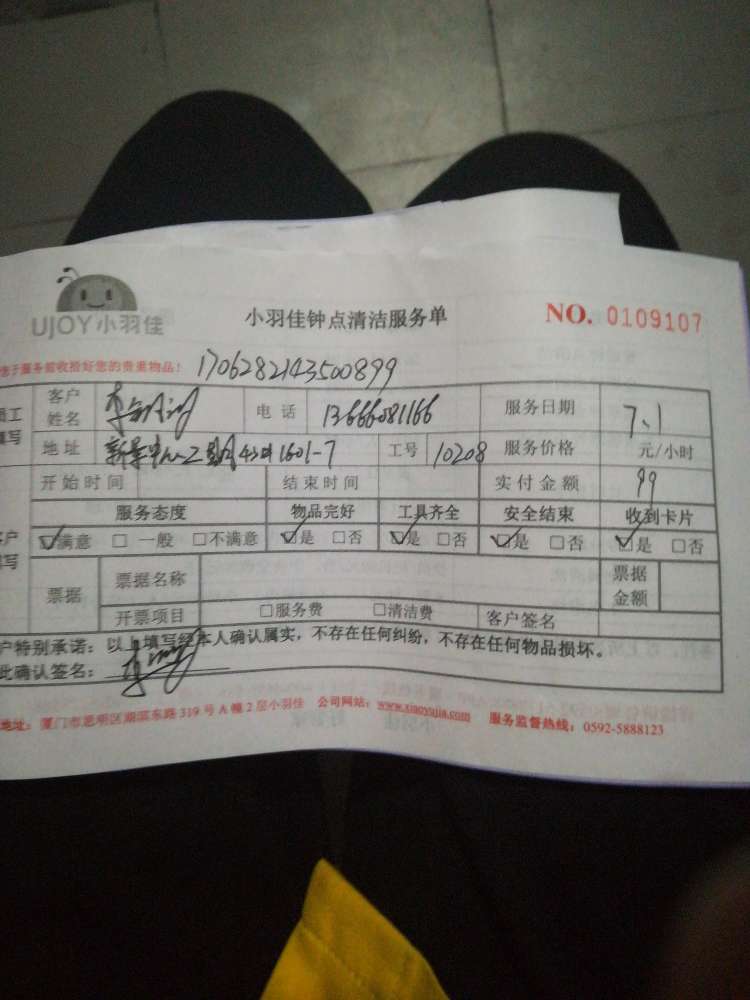 UJOY小羽佳
小羽佳钟点清洁服务单
NO. 0109107
于服务前收拾好您的贵重物品! 1706282143500899
员工
填写
客户姓名 李 电话 13666081166 服务日期 7、1
地址 新景中心二期 1601-7 工号 10208 服务价格 元/小时
开始时间 结束时间 实付金额 99
服务态度 物品完好 工具齐全 安全结束 收到卡片
☑满意 □一般 □不满意 ☑是 □否 ☑是 □否 ☑是 □否 ☑是 □否
票据 票据名称 票据金额
开票项目 □服务费 □清洁费 客户签名
户特别承诺：以上填写经本人确认属实，不存在任何纠纷，不存在任何物品损坏。
此确认签名：
地址：厦门市思明区湖滨东路 319 号 A 幢 2 层小羽佳 公司网站：www.xiaoyujia.com 服务监督热线：0592-5888123